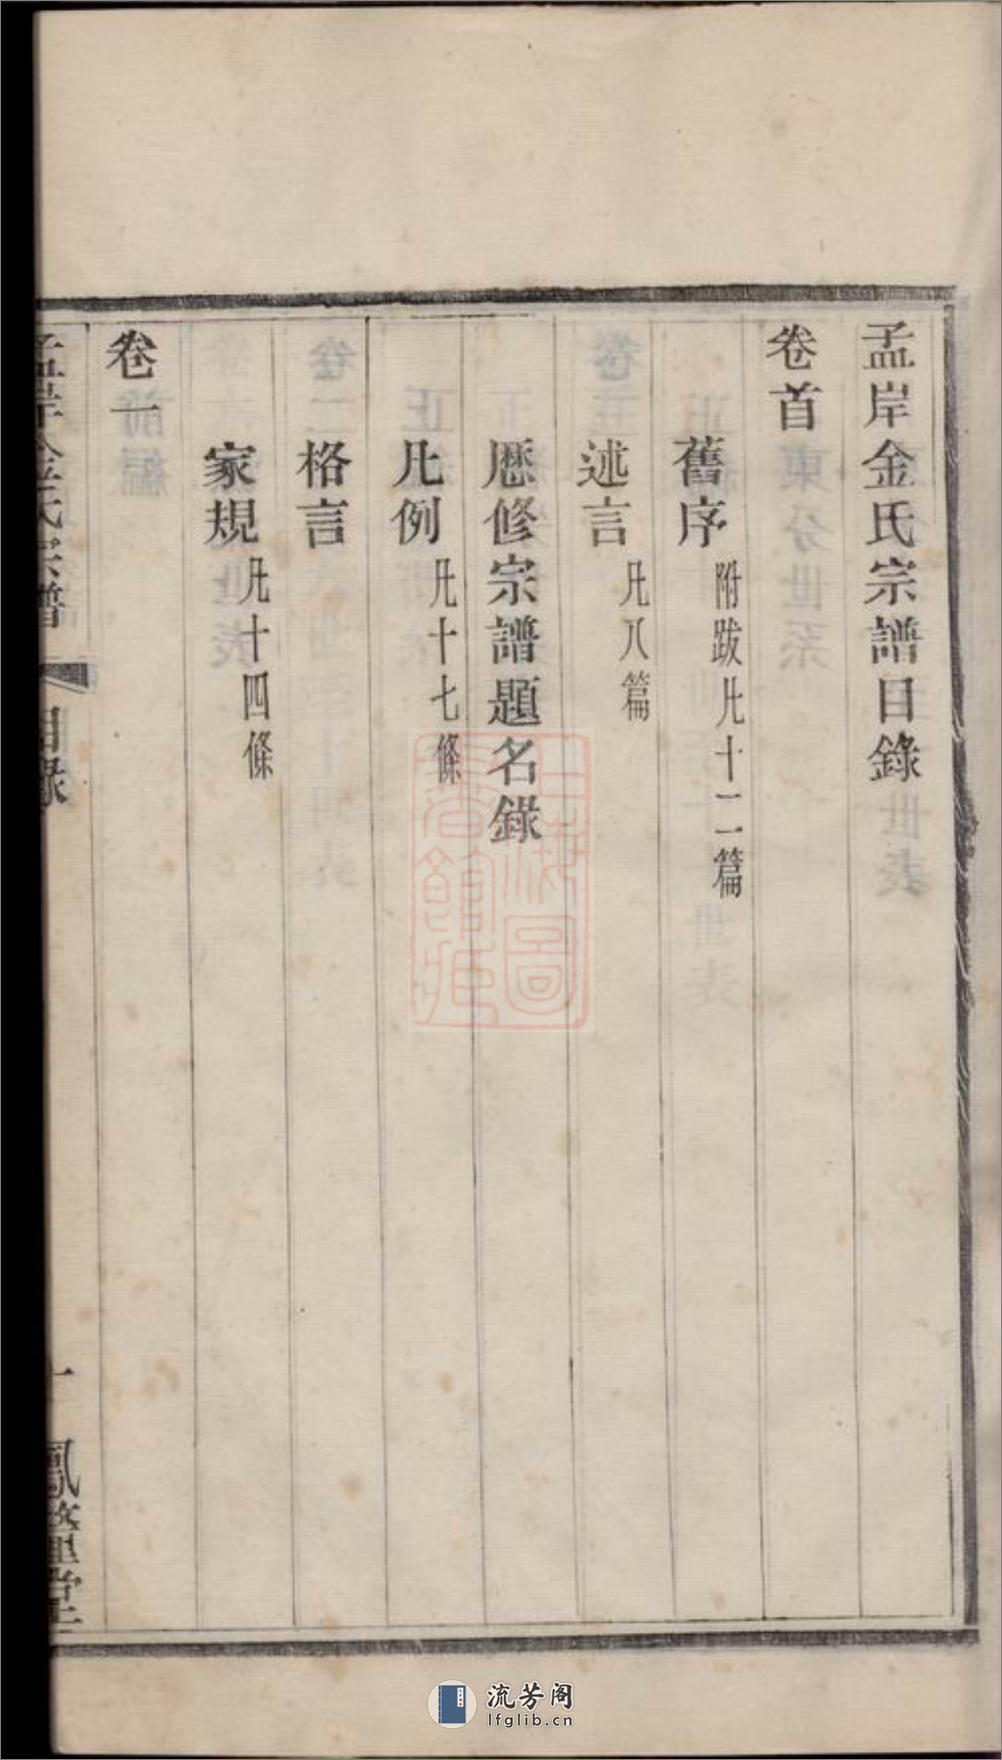 孟岸金氏宗譜目錄
卷首
舊序 附跋凡十二篇
述言 凡八篇
歷修宗譜題名錄
凡例 凡十七條
格言
家規 凡十四條
卷一
孟岸金氏宗譜
目錄
一
上海圖書館藏
流芳阁
lfglib.cn